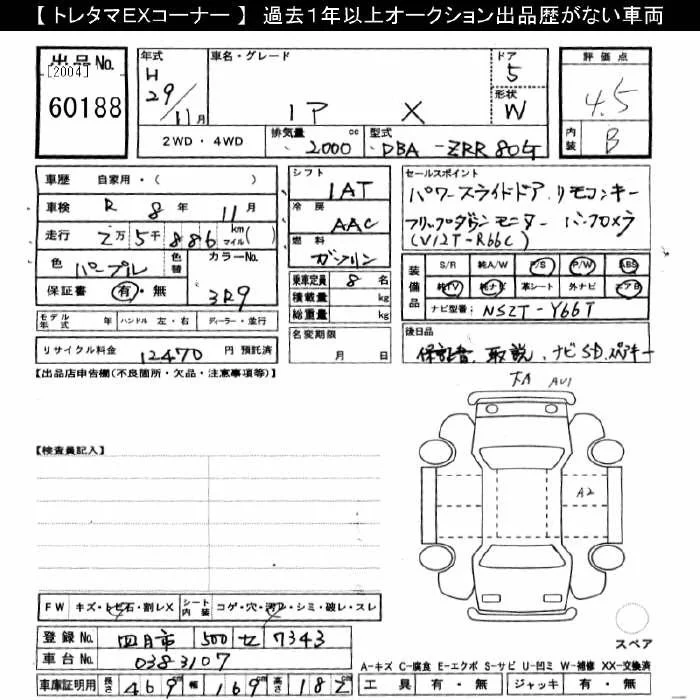 【 トレタマEXコーナー 】 過去1年以上オークション出品歴がない車両
出品No.
[2004]
60188
年式 H 29/11月
車名・グレード
ノア X
ドア 5
形状 W
評価点 4.5
内装 B
2WD・4WD
排気量 2000 cc
型式 DBA-ZRR80G
車歴 自家用・( )
車検 R 8年 11月
走行 2万5千886 km マイル( )
色 パープル 色替 カラーNo. 3R9
保証書 有・無
モデル年式 年 ハンドル 左・右 ディーラー・並行
リサイクル料金 12470 円 預託済
シフト IAT
冷房 AAC
燃料 ガソリン
乗車定員 8 名
積載量 kg
総重量 kg
名変期限
月 日
セールスポイント
パワースライドドア リモコンキー
フリップダウンモニター バックカメラ
(V12T-R66C)
装備品
S/R 純A/W P/S P/W ABS
純TV 純ナビ 革シート 外ナビ エアB
ナビ型番: NSZT-Y66T
後日品
保証書 取説、ナビSD、スペアキー
【出品店申告欄(不良箇所・欠品・注意事項等)】
【検査員記入】
AU1
A2
FW キズ・トビ石・割レX シート内装 コゲ・穴・汚レ・シミ・破レ・スレ
登録No. 四日市 500 セ 7343
車台No. 0383107
車庫証明用 長さ 469 幅 169 高さ 182
スペア
A-キズ C-腐食 E-エクボ S-サビ U-凹ミ W-補修 XX-交換済
工具 有・無 ジャッキ 有・無